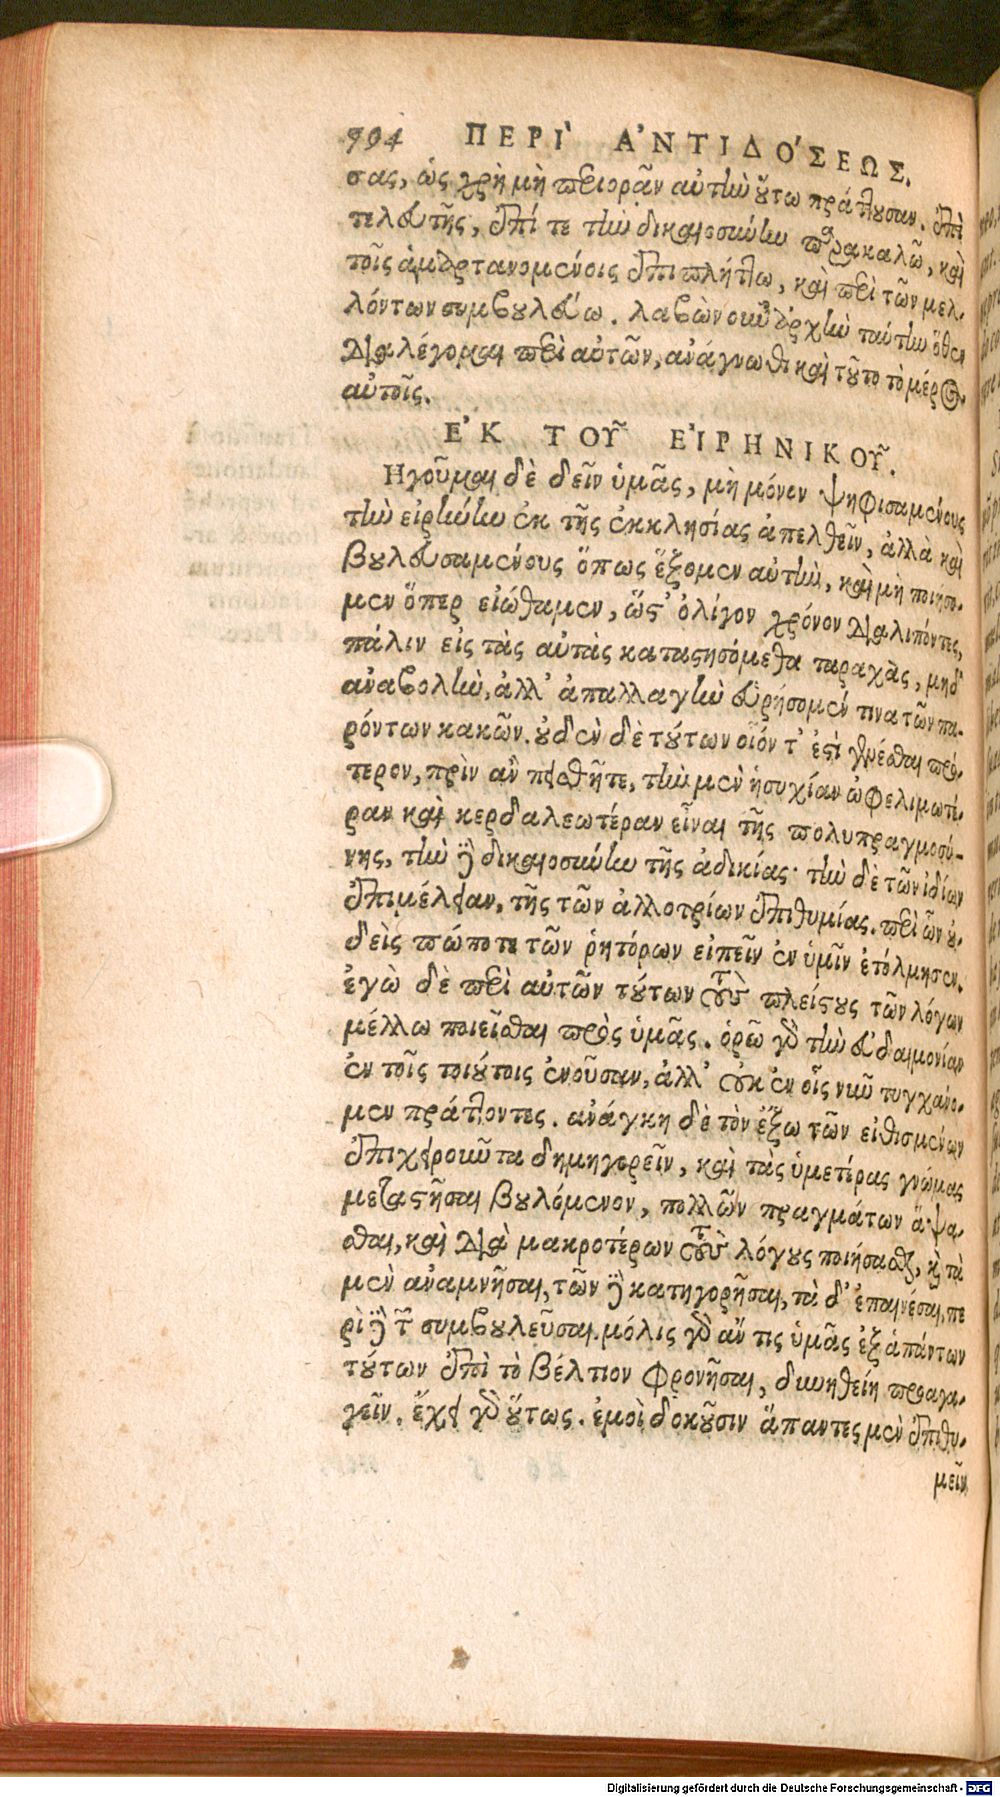 994 ΠΕΡΙ` Α'ΝΤΙΔΟ'ΣΕΩΣ.
σας, ὡς χρὴ μὴ περιορᾶν αὐτὴν οὕτω πράττουσαν. ἐπὶ
τελευτῆς, ἐπί τε τὴν δικαιοσύνην παρακαλῶ, καὶ
τοῖς ἁμαρτανομένοις ἐπιπλήττω, καὶ περὶ τῶν μελ-
λόντων συμβουλεύω. λαβὼν οὖν ἀρχὴν ταύτην ὅθεν
διαλέγομαι περὶ αὐτῶν, ἀνάγνωθι καὶ τοῦτο τὸ μέρος
αὐτοῖς.
Ε'Κ ΤΟΥ͂ ΕἸΡΗΝΙΚΟΥ͂.
Ηγοῦμαι δὲ δεῖν ὑμᾶς, μὴ μόνον ψηφισαμένους
τὴν εἰρήνην ἐκ τῆς ἐκκλησίας ἀπελθεῖν, ἀλλὰ καὶ
βουλευσαμένους ὅπως ἕξομεν αὐτὴν, καὶ μὴ ποιήσο-
μεν ὅπερ εἰώθαμεν, ὥστ' ὀλίγον χρόνον διαλιπόντες,
πάλιν εἰς τὰς αὐτὰς καταστησόμεθα ταραχὰς, μηδ'
ἀναβολὴν, ἀλλ' ἀπαλλαγὴν εὑρήσομέν τινα τῶν πα-
ρόντων κακῶν. οὐδὲν δὲ τούτων οἷόν τ' ἐστὶ γενέσθαι πρό-
τερον, πρὶν ἂν πεισθῆτε, τὴν μὲν ἡσυχίαν ὠφελιμωτέ-
ραν καὶ κερδαλεωτέραν εἶναι τῆς πολυπραγμοσύ-
νης, τὴν δὲ δικαιοσύνην τῆς ἀδικίας· τὴν δὲ τῶν ἰδίων
ἐπιμέλειαν, τῆς τῶν ἀλλοτρίων ἐπιθυμίας. περὶ ὧν οὐ-
δεὶς πώποτε τῶν ῥητόρων εἰπεῖν ἐν ὑμῖν ἐτόλμησεν.
ἐγὼ δὲ περὶ αὐτῶν τούτων τοὺς πλείστους τῶν λόγων
μέλλω ποιεῖσθαι πρὸς ὑμᾶς. ὁρῶ γὰρ τὴν εὐδαιμονίαν
ἐν τοῖς τοιούτοις ἐνοῦσαν, ἀλλ' οὐκ ἐν οἷς νῦν τυγχάνο-
μεν πράττοντες. ἀνάγκη δὲ τὸν ἔξω τῶν εἰθισμένων
ἐπιχειροῦντα δημηγορεῖν, καὶ τὰς ὑμετέρας γνώμας
μεταστῆσαι βουλόμενον, πολλῶν πραγμάτων ἅψα-
σθαι, καὶ διὰ μακροτέρων τοὺς λόγους ποιήσασθαι, καὶ τὰ
μὲν ἀναμνῆσαι, τῶν δὲ κατηγορῆσαι, τὰ δ' ἐπαινέσαι, πε
ρὶ δὲ τῶν συμβουλεῦσαι. μόλις γὰρ ἄν τις ὑμᾶς ἐξ ἁπάντων
τούτων ἐπὶ τὸ βέλτιον φρονῆσαι, δυνηθείη προαγα-
γεῖν. ἔχει γὰρ οὕτως. ἐμοὶ δοκοῦσιν ἅπαντες μὲν ἐπιθυ-
μεῖν
Digitalisierung gefördert durch die Deutsche Forschungsgemeinschaft - DFG